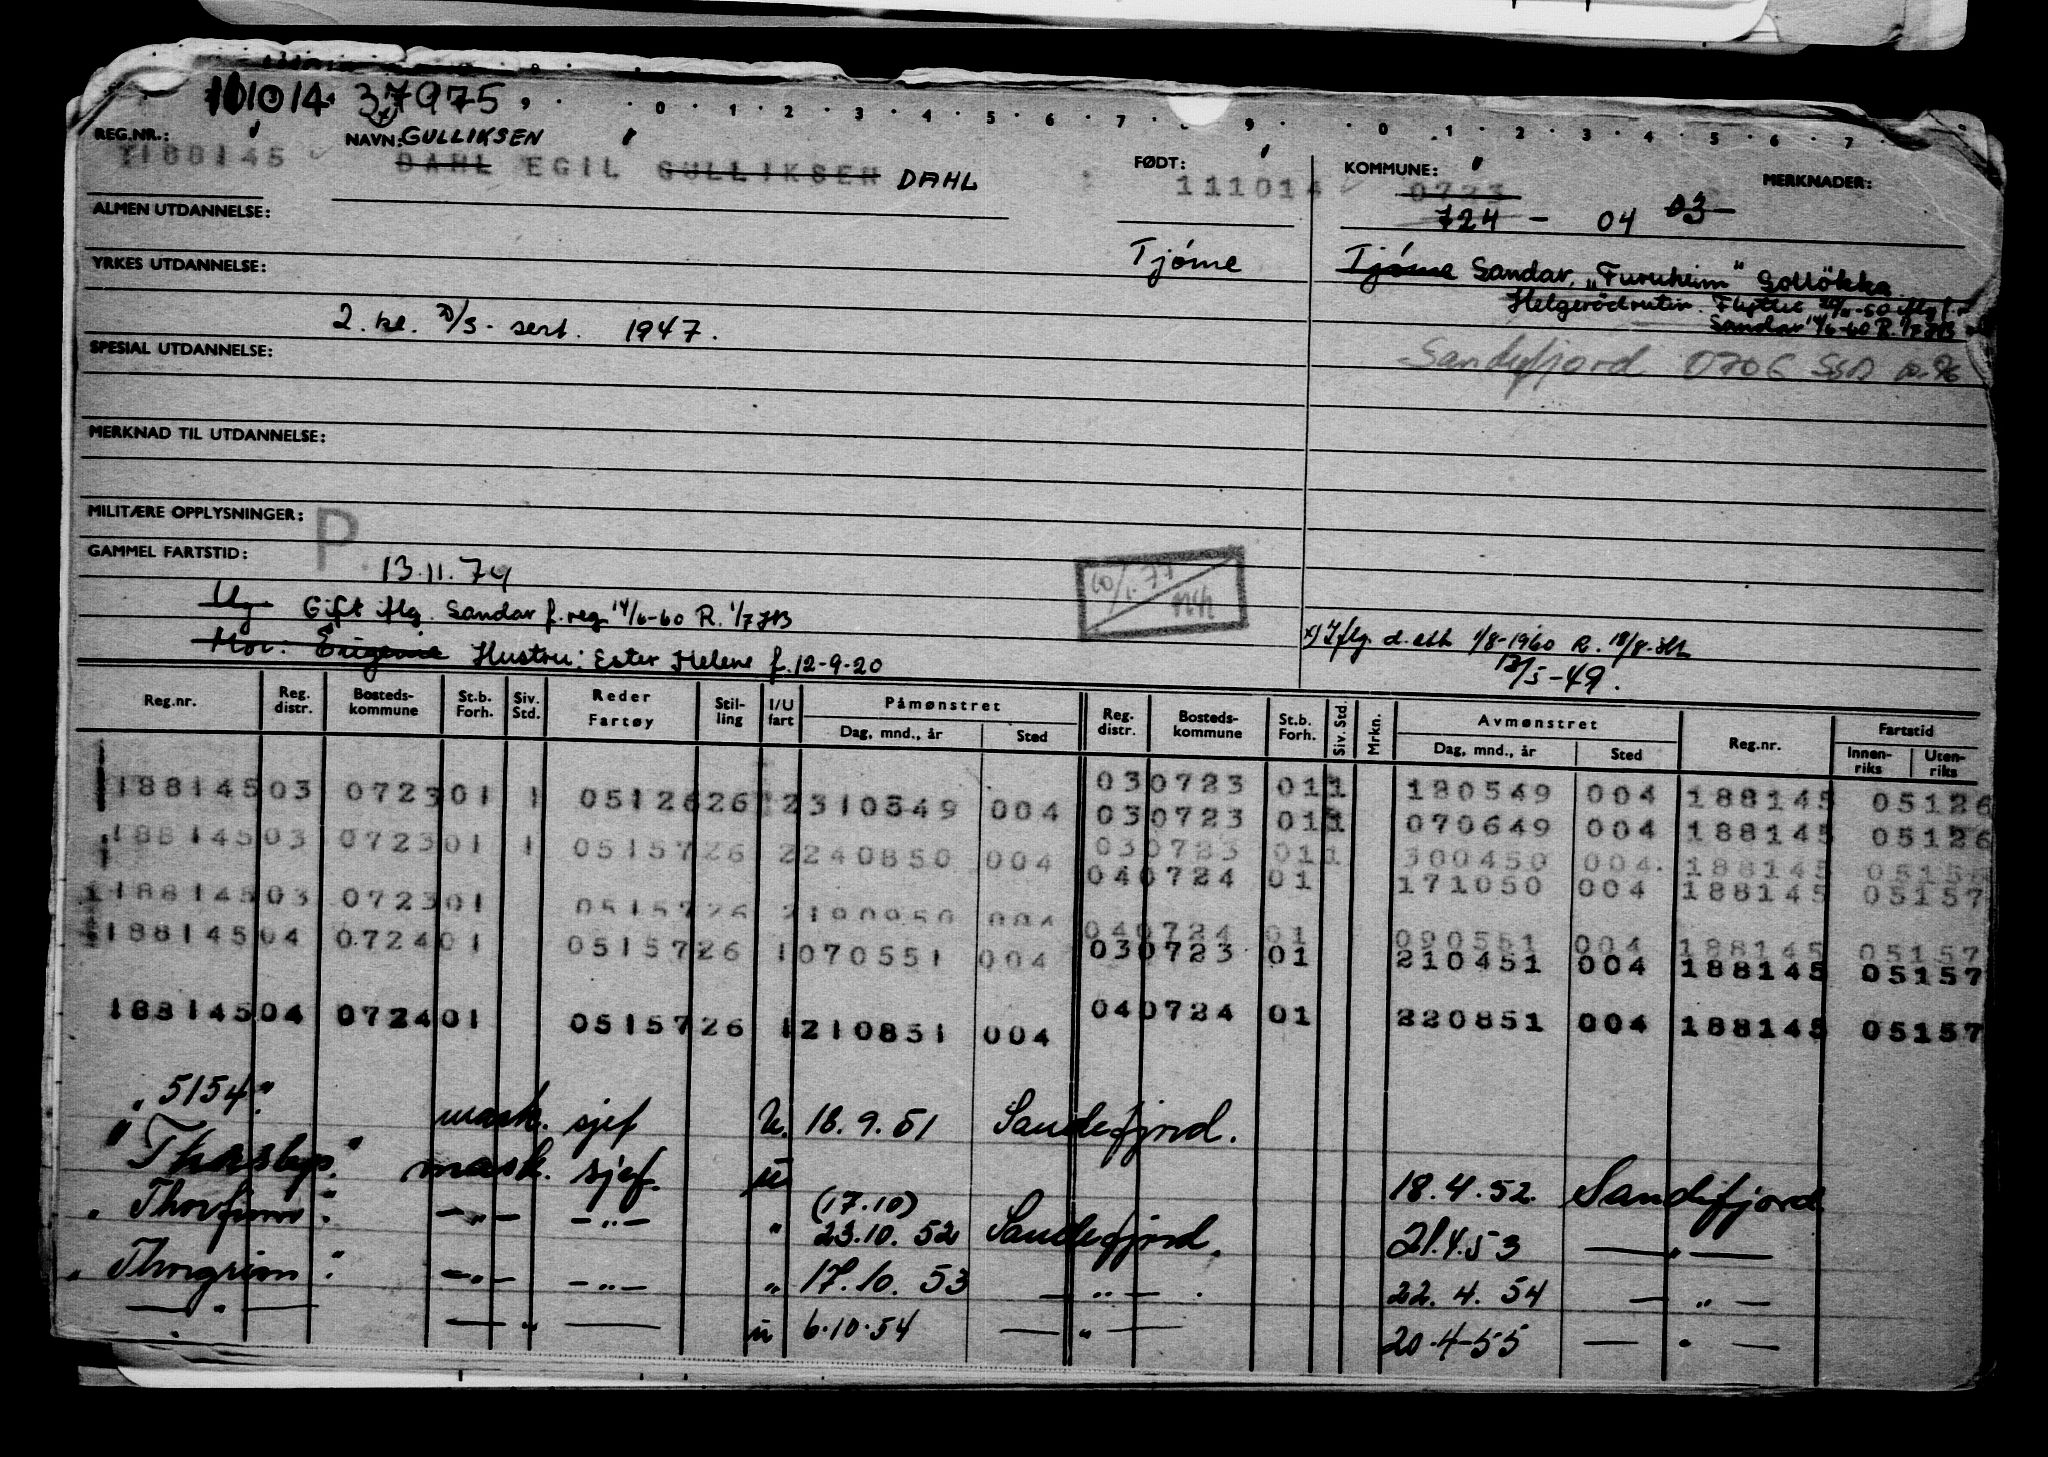 111014 37975
0 . 1 . 2 . 3 . 4 . 5 . 6 . 7 . 9 . 0 . 1 . 2 . 3 . 4 . 5 . 6 . 7 .
REG.NR.: 1188145
NAVN: GULLIKSEN
DAHL EGIL GULLIKSEN DAHL
FØDT: 111014
KOMMUNE: 0723
MERKNADER:
724 - 04 03
ALMEN UTDANNELSE:
Tjöme
Tjöme Sandar, "Furuheim" Gollökka
YRKES UTDANNELSE:
Helgerödruten. Flyttet
Sandar 14/6-60 R. 1/7 JHB
2. kl. D/S- sert. 1947.
SPESIAL UTDANNELSE:
Sandefjord 0706
MERKNAD TIL UTDANNELSE:
MILITÆRE OPPLYSNINGER: P.
GAMMEL FARTSTID:
13.11.74
Ug Gift iflg. Sandar f.reg 14/6-60 R. 1/7 JHB
x) Iflg. d. att 1/8-1960 R. 18/8.
Mor: Eugenie Hustru: Ester Helene f. 12-9-20
-49.
Reg.nr. Reg. distr. Bosteds-kommune St.b. Forh. Siv. Std. Reder Fartøy Stil-ling I/U fart Påmønstret Dag, mnd., år Sted Reg. distr. Bosteds-kommune St.b. Forh. Siv. Std. Mrkn. Avmønstret Dag, mnd., år Sted Reg.nr. Fartstid Innen-riks Uten-riks
188145 03 0723 01 1 05126 26 2 310349 004 03 0723 01 1 180549 004 188145 05126
03 0723 01 1 070649 004 188145 05126
188145 03 0723 01 1 05157 26 2 240850 004 03 0723 01 1 300450 004 188145 05157
04 0724 01 171050 004 188145 05157
188145 03 0723 01 05157 26 2 190950 004
04 0724 01 090551 004 188145 05157
188145 04 0724 01 05157 26 1 070551 004 03 0723 01 210451 004 188145 05157
188145 04 0724 01 05157 26 1 210851 004 04 0724 01 220851 004 188145 05157
"5154" mask. sjef U. 18.9.51 Sandefjord.
"Thorsbyp." mask. sjef. u 18.4.52. Sandefjord
"Thorfinn" - " - - " - " (17.10) 23.10.52 Sandefjord. 21.4.53 - " -
"Thorgrim" - " - - " - " 17.10.53 - " - . 22.4.54 - " -
- " - - " - u 6.10.54 - " - 20-4-55 - " -